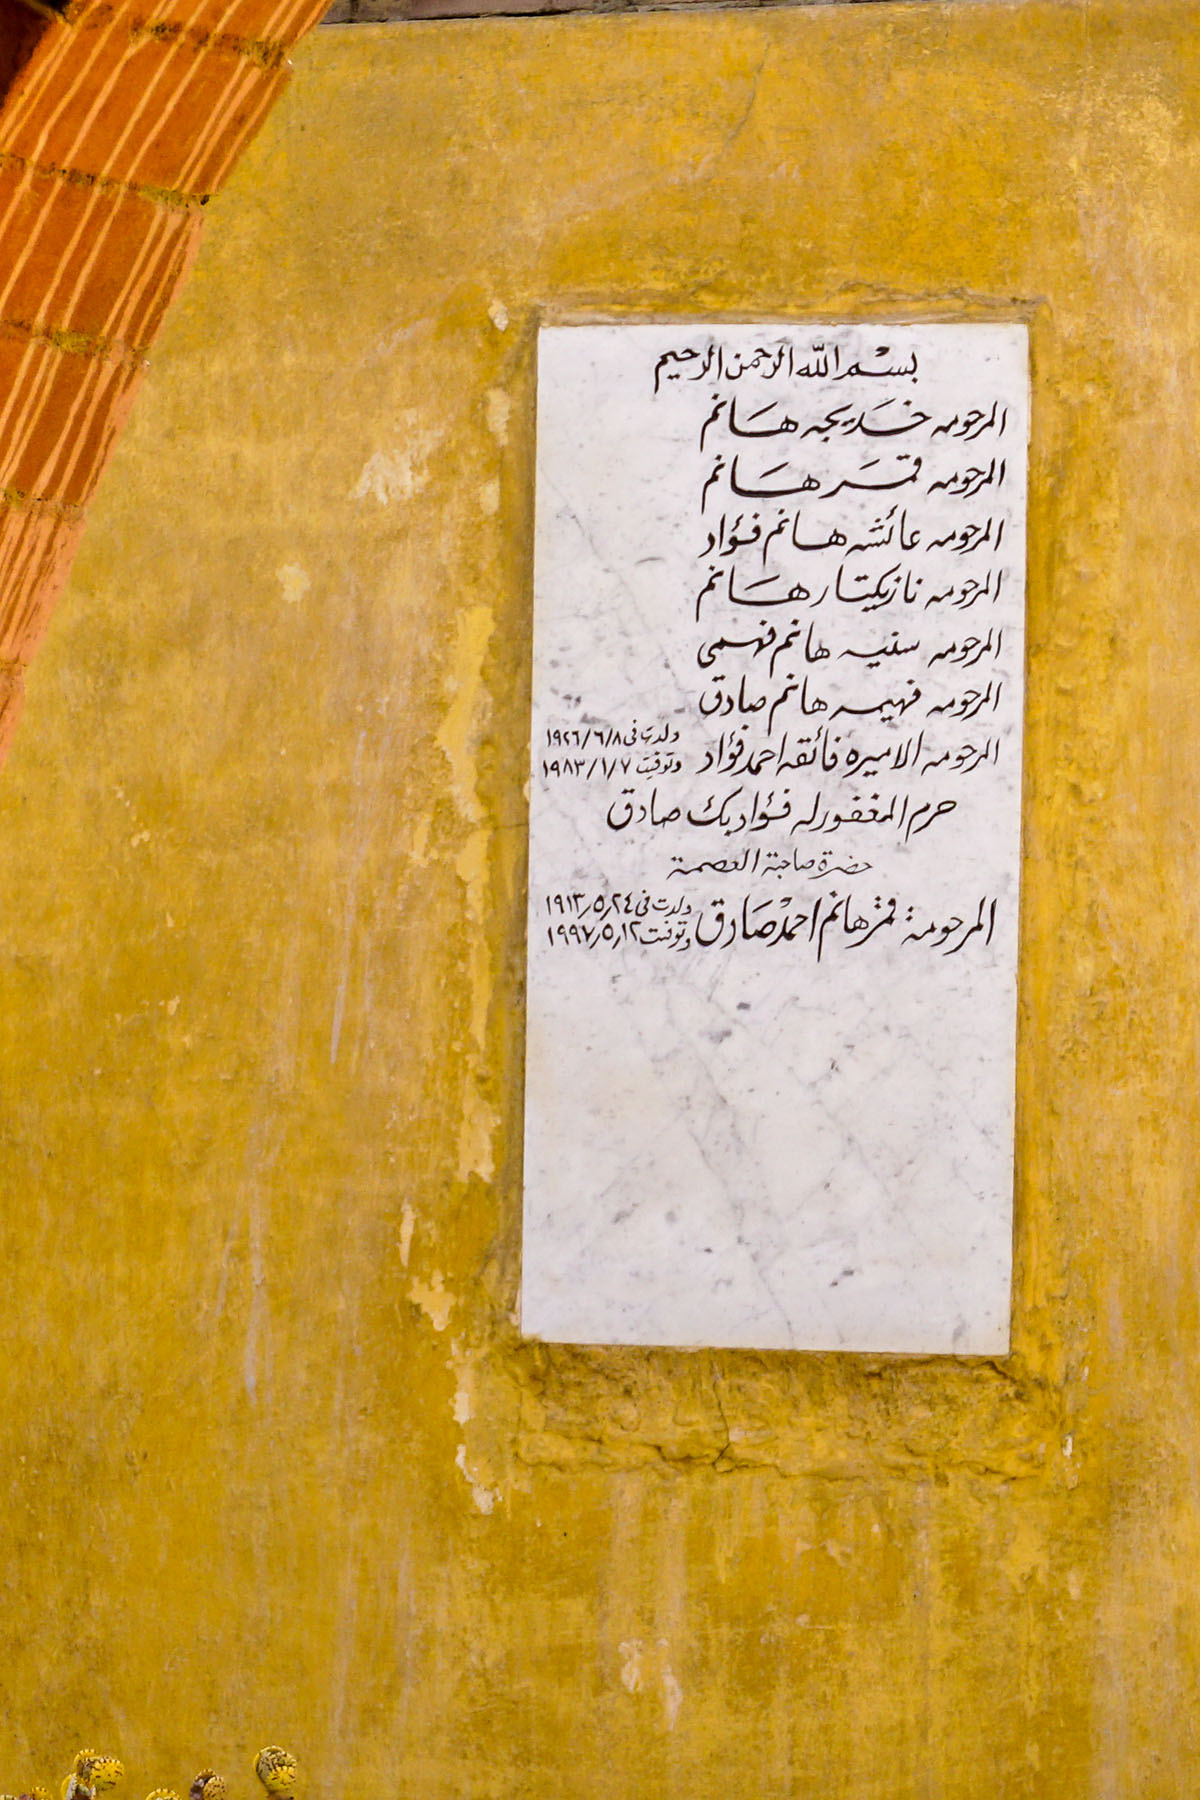 بسم الله الرحمن الرحيم
المرحومه خديجه هانم
المرحومه قمر هانم
المرحومه عائشه هانم فؤاد
المرحومه نازيكتار هانم
المرحومه سنيه هانم فهمى
المرحومه فهيمه هانم صادق
المرحومه الاميره فائقه احمد فؤاد ولدت فى ١٩٢٦/٦/٨ وتوفيت ١٩٨٣/١/٧
حرم المغفور له فؤاد بك صادق
حضرة صاحبة العصمة
المرحومة قمر هانم احمد صادق ولدت فى ١٩١٣/٥/٢٤ وتوفيت ١٩٩٧/٥/١٢